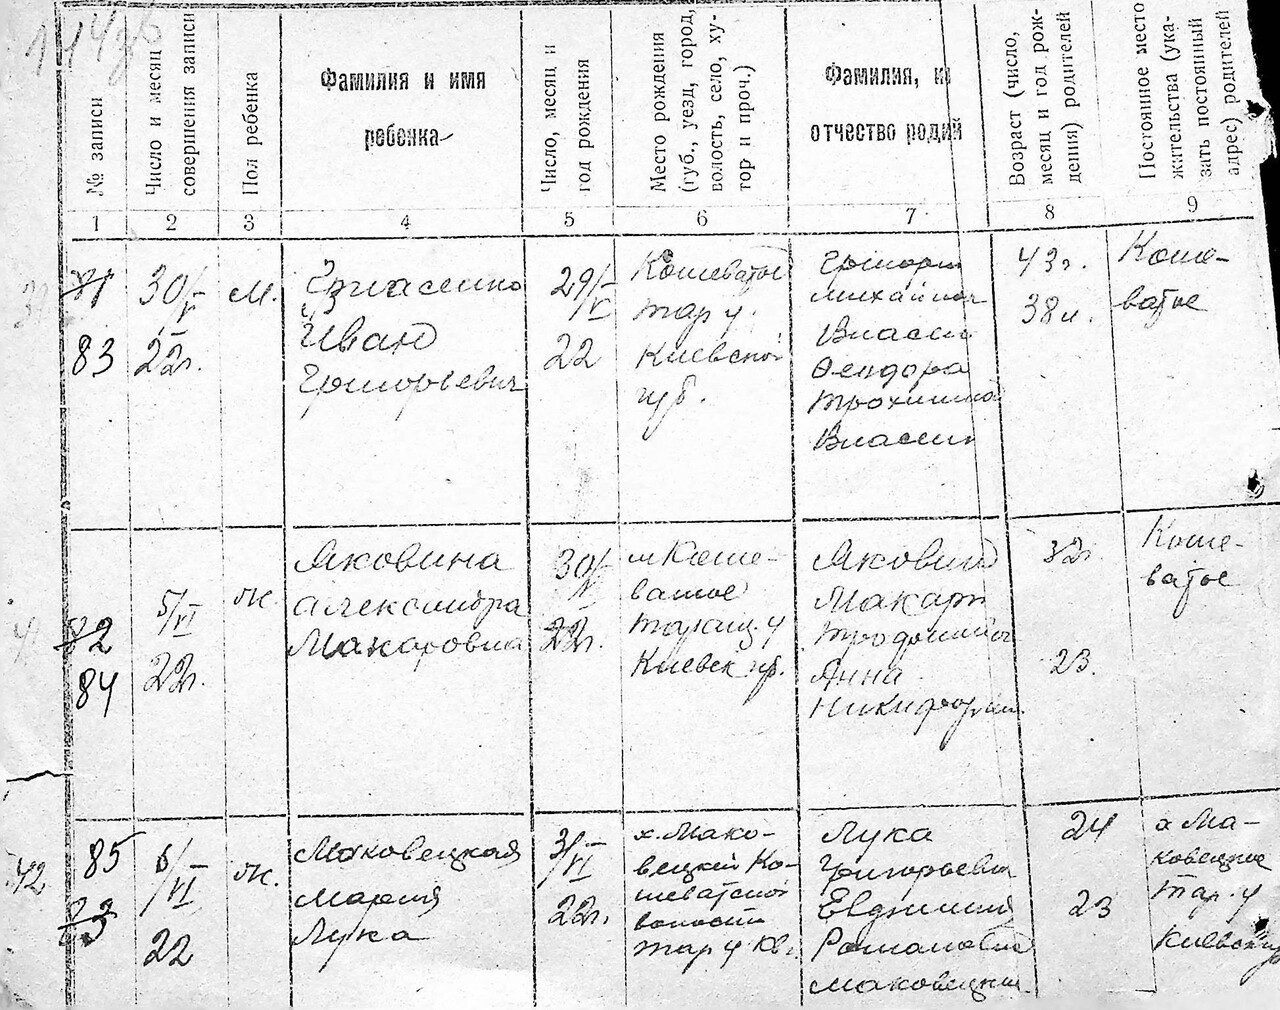 114об
№ записи
Число и месяц
совершения записи
Пол ребенка
Фамилия и имя
ребенка
Число, месяц и
год рождения
Место рождения
(губ., уезд, город,
волость, село, ху-
тор и проч.)
Фамилия, и
отчество родий
Возраст (число,
месяц и год рож-
дения) родителей
Постоянное место
жительства (ука-
зать постоянный
адрес) родителей
1 2 3 4 5 6 7 8 9
81
83
30/V
22г.
м.
Иван
Григорьевич
29/V
22
Кошеватое
тар у.
Киевской
губ.
Григорий
Михайлич
Власен
Феодора
Трохимов
Власен
43г.
38л.
Коше-
ватое
82
84
5/VI
22г.
ж.
Яковина
Александра
Макаровна
30/V
22г.
м Коше-
ватое
Таращ. у
Киевск губ.
Яковин
Макар
Трофимич
Анна
Никифор
32г
23.
Коше-
ватое
42
85
83
6/VI
22
ж.
Маковецкая
Мария
Лука
3/VI
22г.
х. Мако-
вецкий Ко-
шеватской
волости
тар у Кв.
Лука
Григорьевич
Евдокия
Романовна
Маковецкие
24
23
х Ма-
ковецкое
Тар. у
Киевск губ